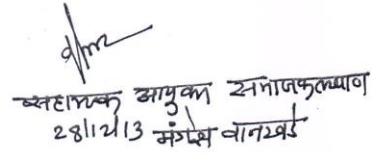 सहायक आयुक्त समाजकल्याण
28/12/13 मंगेश वानखडे